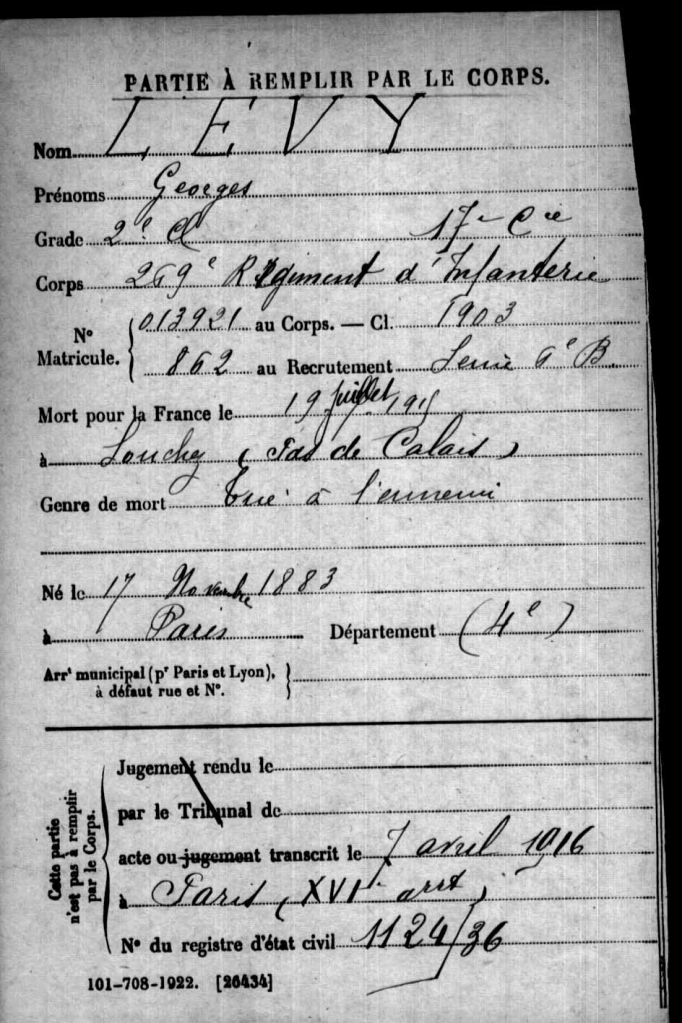 PARTIE À REMPLIR PAR LE CORPS.
Nom LEVY
Prénoms Georges
Grade 2e Cl 17e Cie
Corps 269e Régiment d'Infanterie
N° Matricule. 013921 au Corps. — Cl. 1903
862 au Recrutement Seine 6e B.
Mort pour la France le 19 Juillet 1915
à Souchez (Pas de Calais)
Genre de mort tué à l'ennemi
Né le 17 Novembre 1883
à Paris Département (4e)
Arrt municipal (pr Paris et Lyon),
à défaut rue et N°.
Cette partie n'est pas à remplir par le Corps.
Jugement rendu le
par le Tribunal de
acte ou jugement transcrit le 7 avril 1916
à Paris (XVIe arrt)
N° du registre d'état civil 1124/36
101-708-1922. [26434]